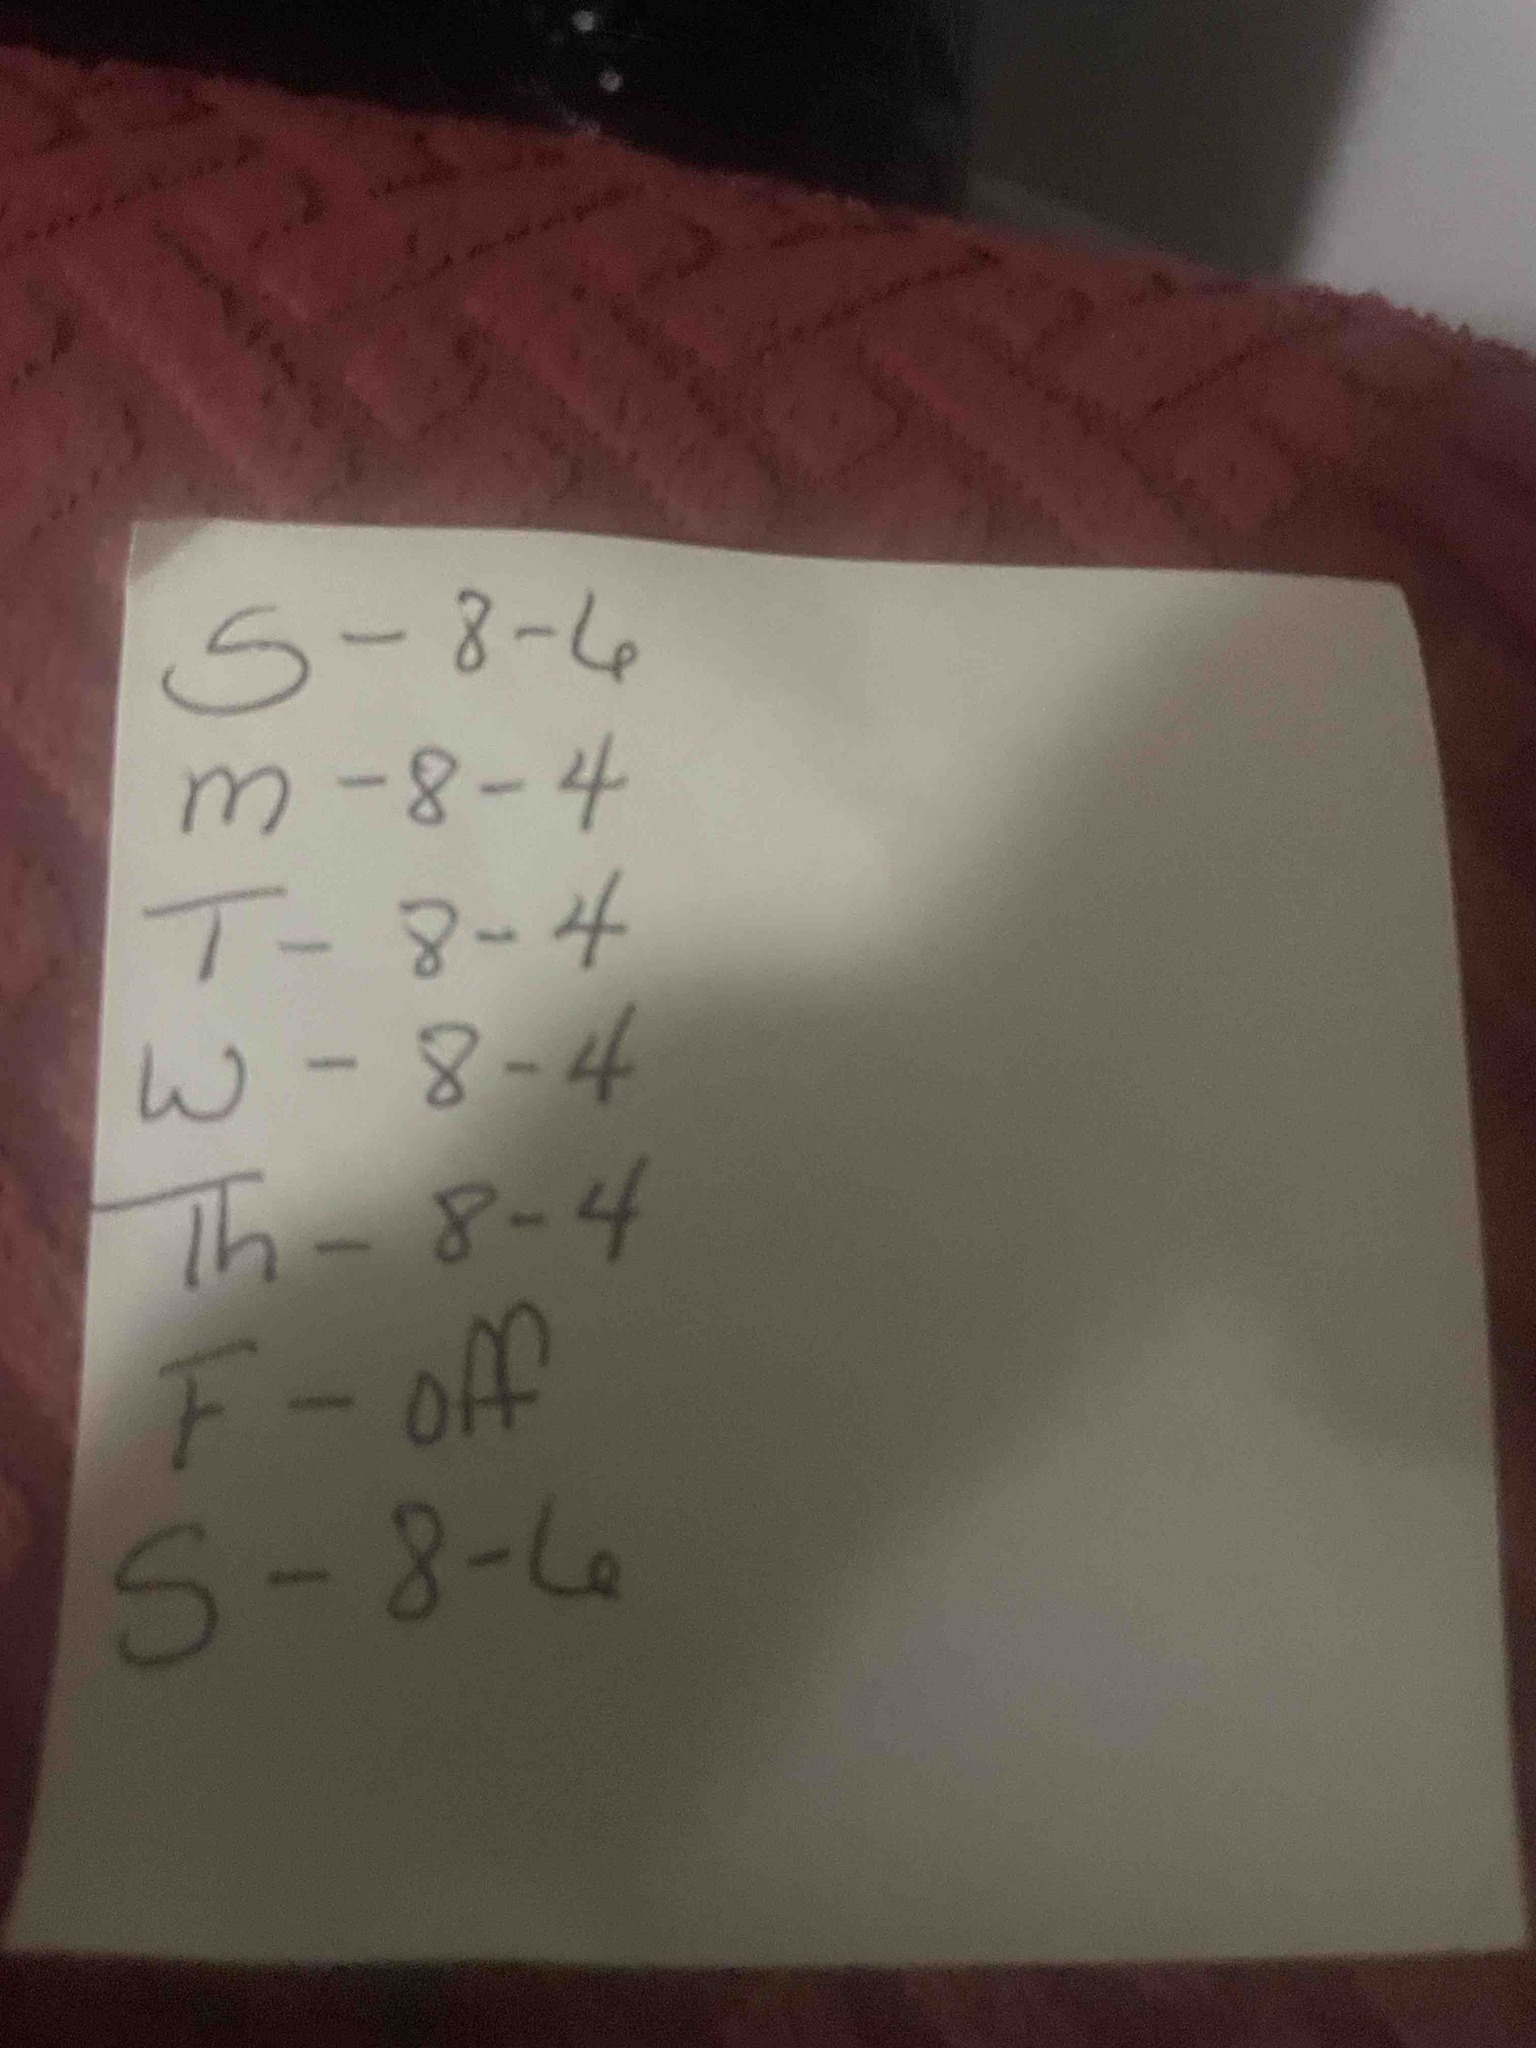 S - 8-6
M - 8-4
T - 8-4
W - 8-4
Th - 8-4
F - off
S - 8-6